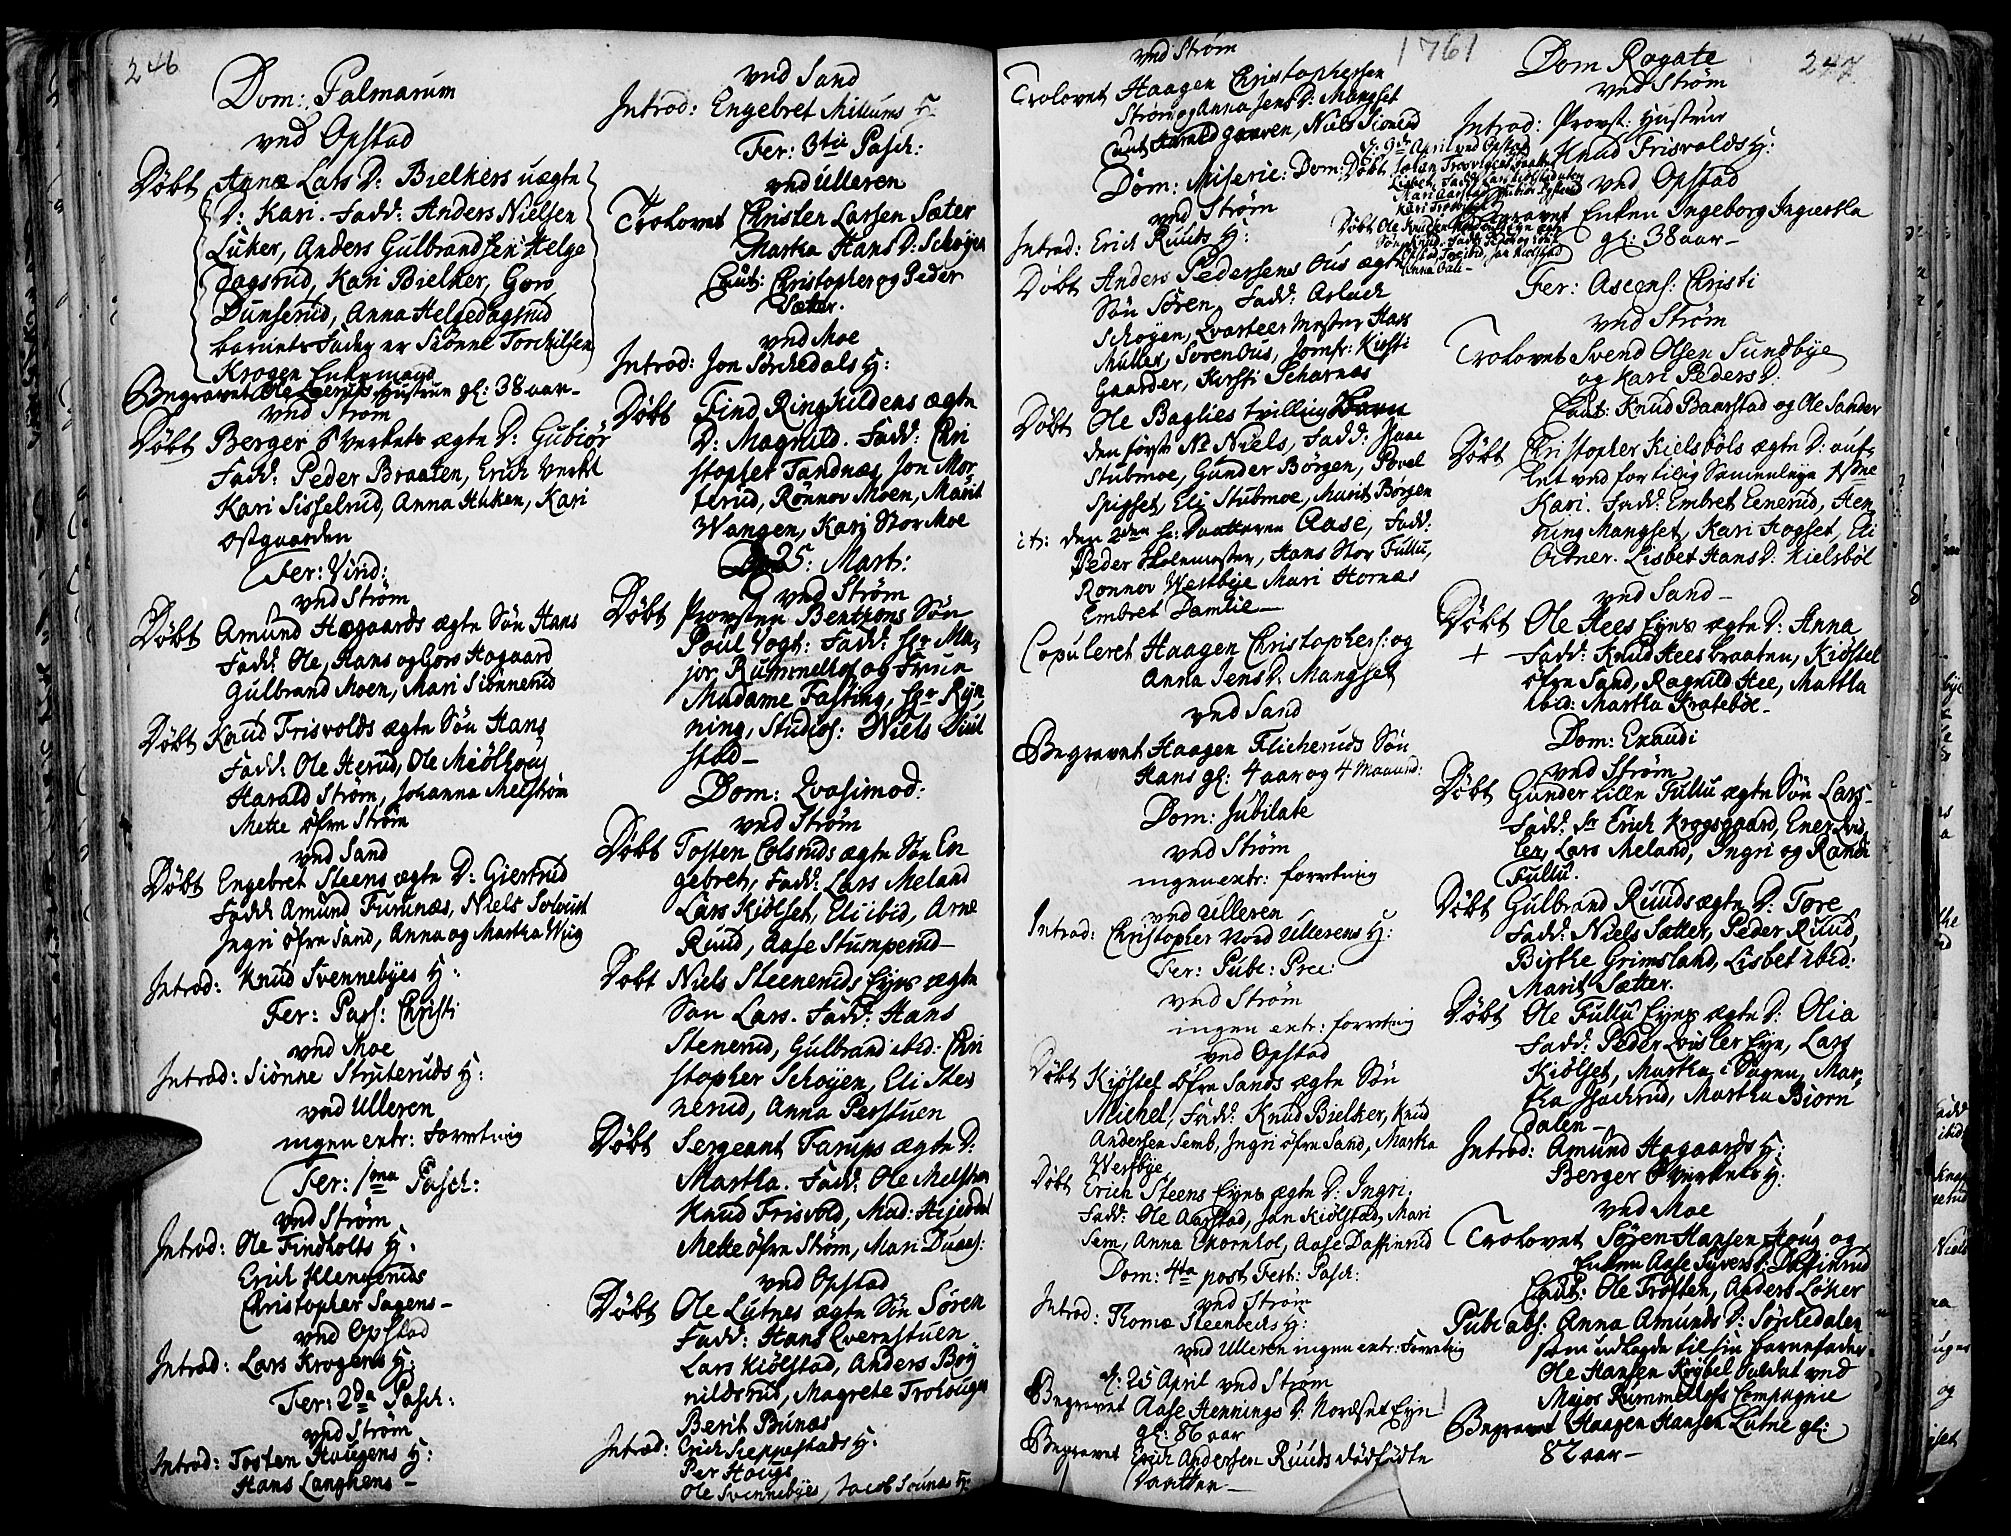 246
Dom: Palmarum
ved Opstad
Døbt Anna Lars D: Bielkers uægte
D: Kari. Fadd: Anders Nielsen
Lüker, Anders Gulbrandsen Helge
Dagsrud, Kari Bielker, Goro
Dunserud, Anna Helgedagsrud
barnets Fader er Siönne Torchilsen
Krogen Enkemand
Begravet Ole Hustrue gl: 38 aar
ved Strøm
Døbt Berger Sverkets ægte D: Gubiør
Fadd: Peder Braaten, Erich Verket
Kari Sisselrud, Anna Huken, Kari
ostgaarden
Fer: Virid:
ved Strøm
Døbt Amund Hagaards ægte Søn Hans
Fadd: Ole, Hans og Goro Hagaard
Gulbrand Moen, Mari Siønnerud
Døbt Knud Frisvolds ægte Søn Hans
Fadd: Ole Herud, Ole Miölhoug
Harald Strøm, Johanna Melstrøm
Mette öfre Strøm
ved Sand
Døbt Engebret Steens ægte D: Giertrud
Fadd: Amund Furunæs, Niels
Ingri öfre Sand, Anna og Martha Wiig
Introd: Knud Svennebyes H:
Fer: Pass: Christi
ved Moe
Introd: Siønne Struteruds H:
ved Ulleren
ingen extr: Forretning
Fer: 1ma Pasch:
ved Strøm
Introd: Ole Findholts H:
Erich Klengeruds
Christopher Sagens
ved Opstad
Introd: Lars Krogens H:
Fer: 2da Pasch:
ved Strøm
Introd: Tosten Haugens H:
Hans Langhens
ved Sand
Introd: Engebret Millums H
Fer: 3tia Pasch:
ved Ulleren
Trolovet Christen Larsen Sæter
Martha Hans D: Schøyen
Caut: Christopher og Peder
Sæter.
ved Moe
Introd: Jon Sørkedals H:
Døbt Find Ringkildens ægte
D: Magnild. Fadd: Chri
stopher Tandnæs, Jon Mor
terud, Rönnov Moen, Marit
Wangen, Kari Stor Moe
25: Mart:
ved Strøm
Døbt Provsten Bentzons Søn
Poul Vogt: Fadd: Hr Ma-
jor, Rummelhof og Fruen
Madame Fasting, Hr Ryn
ning, Studios: Niels
stad
Dom: Qvasimod:
ved Strøm
Døbt Tosten Colsruds ægte Søn En
gebret, Fadd: Lars Meland
Lars Kiölset, Eli ibid, Arne
Ruud, Aase Stumperud
Døbt Niels Steeneruds Eyes ægte
Søn Lars. Fadd: Hans
Stenerud, Gulbrand ibid: Chri
stopher Schøyen, Eli Ste
nerud, Anna Perstuen
Døbt Sergeant Farups ægte D:
Martha. Fadd: Ole Melstrøm
Knud Frisvold, Mad:
Mette öfre Strøm, Mari
ved Opstad
Døbt Ole Lutnes ægte Søn Søren
Fadd: Hans Qvernstuen
Lars Kiölstad, Anders Boy
nildsrud, Magrete Trolougen
Berit Bunæs
Introd: Erich Seppestads H:
Per Hougs
Ole Svennebyes, Jacob H:
1761
ved Strøm
Trolovet Haagen Christophersen
Strøm og Anna Jens D: Mangset
Caut Harald gaaren, Niels Siönerud
Dom: Miserie: Dom:
ved Strøm
Introd: Erich Ruuds H:
d: 9de April ved Opstad
Døbt Johan
Døbt Ole Knudsen
Døbt Anders Pedersens Ous ægte
Søn Søren, Fadd: Aslach
Schøyen, Qvarteermester Hans
Müller, Søren Ous, Jomfr: Kirsti
Gaarder, Kirsti Scharnæs
Døbt Ole Baglies tvilling Barn
den første No Niels, Fadd:
Stubmoe, Gunder Børgen, Povel
Spigset, Eli Stubmoe, Marit Børgen
it: den 2den Datteren Aase, Fadd:
Peder Skolemester, Hans Stor Fullu,
Ronnov Westbye Mari Hornæs
Embret Damlie
Copuleret Haagen Christophers: og
Anna Jens D. Mangset
ved Sand
Begravet Haagen Flicheruds Søn
Hans gl: 4 aar og 4 Maaned:
Dom: Jubilate
ved Strøm
ingen extr: forretning
ved Ulleren
Introd: Christopher Nord Ullerens H:
Fer: Publ: Prec:
ved Strøm
ingen extr: forretning
ved Opstad
Døbt Kiøstel öfre Sands ægte Søn
Michel, Fadd: Knud Bielker, Knud
Andersen Semb, Ingri öfre Sand, Martha
Westbye
Døbt Erich Steens Eyes ægte D: Ingri.
Fadd: Ole Aarstad, Jan Kiölstad, Mari
Sem, Anna Chornhol, Aase Daffinrud
Dom: 4ta post Fest: Pasch:
ved Strøm
Introd: Thomæ Steenbechs H:
ved Ulleren ingen extr: Forretning
d: 25 April ved Strøm
Begravet Aase Hennings D: Nordset Eye
gl: 86 aar
Begravet Erich Andersen Ruuds dødfødte
Daatter
247
Dom Rogate
ved Strøm
Introd: Provst: Hustrue
Knud Frisvolds H:
ved Opstad
Begravet Enken Ingeborg
gl: 38 aar
Fer: Ascens: Christi
ved Strøm
Trolovet Svend Olsen Sundbye
og Kari Peders D:
Caut: Knud Baarstad og Ole Sander
Døbt Christopher Kielsbøls ægte D: auf-
let ved for tilig Sammenleje No
Kari. Fadd: Embret Eenerud, Hen
ning Mangset, Kari Hogset, Eli
Aitner. Lisbet Hans D: Kielsböl
ved Sand
Døbt Ole Hees Eyes ægte D: Anna
+ Fadd: Knud Hees braaten, Kiöstel
öfre Sand, Ragnild Hee, Martha
ibid: Martha Krateböl
Dom: Exaudi
ved Strøm
Døbt Gunder lille Fullu ægte Søn Lars
Fadd: Sr Erich Krogsgaard, Ener
ler, Lars Meland, Ingri og Randi
Fullu.
Døbt Gulbrand Ruuds ægte D: Tore
Fadd: Niels Sætter, Peder Ruud,
Birthe Grimsland, Lisbet ibid:
Marit Sætter.
Døbt Ole Fullu Eyes ægte D: Olia
Fadd: Peder Eye, Lars
Kiölset, Martha i Sagen, Mar-
tha Martha Biörn
dalen
Introd: Amund Hagaards H:
Berger Sverkets H:
ved Moe
Trolovet Søren Hansen Houg og
Enken Aase Syvers D: Daffinrud
Caut: Ole Troften, Anders Löker
Publ abs: Anna Amunds D: Sørkedalen
som udlagde til sin barnefader
Ole Hansen Krøbel Soldat ved
Major Rummelhofs Compagnie
Begravet Haagen Hansen Lutne gl:
82 aar